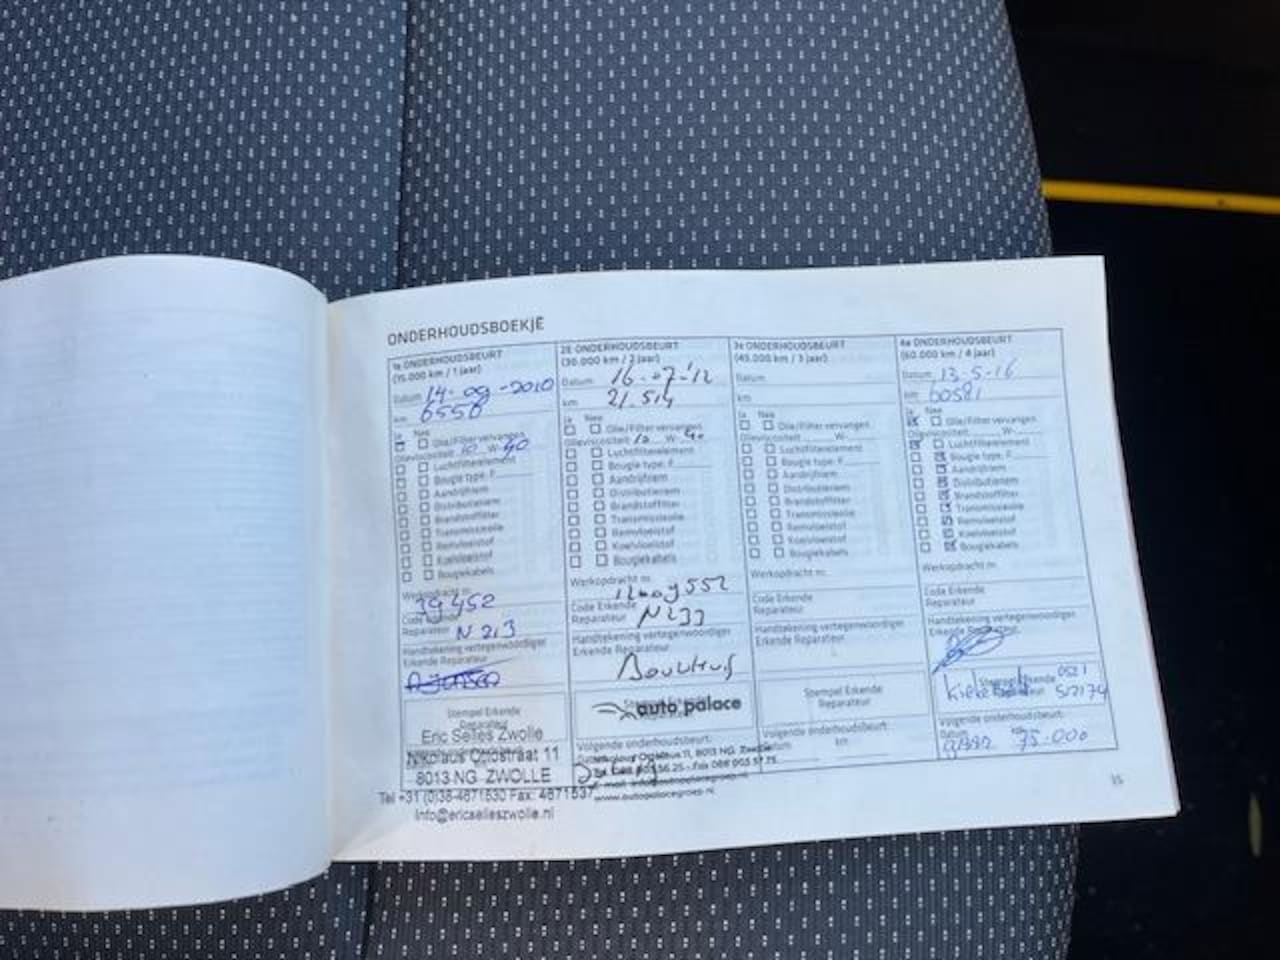 ONDERHOUDSBOEKJE
1e ONDERHOUDSBEURT
(15.000 km / 1 jaar)
Datum 14-09-2010
km 6550
Ja Nee
Olie/Filter vervangen
Olieviscositeit 10 W-40
Luchtfilterelement
Bougie type: F
Aandrijfriem
Distributieriem
Brandstoffilter
Transmissieolie
Remvloeistof
Koelvloeistof
Bougiekabels
Werkopdracht nr.
39452
Code Erkende
Reparateur N 213
Handtekening vertegenwoordiger
Erkende Reparateur
Stempel Erkende
Reparateur
Eric Selles Zwolle
Nikolaus Ottostraat 11
8013 NG ZWOLLE
Tel +31 (0)38-4671530 Fax: 4671537
info@ericselleszwolle.nl
2e ONDERHOUDSBEURT
(30.000 km / 2 jaar)
Datum 16-07-'12
km 21.514
Ja Nee
Olie/Filter vervangen
Olieviscositeit 10 W-40
Luchtfilterelement
Bougie type: F
Aandrijfriem
Distributieriem
Brandstoffilter
Transmissieolie
Remvloeistof
Koelvloeistof
Bougiekabels
Werkopdracht nr.
Code Erkende
Reparateur N233
Handtekening vertegenwoordiger
Erkende Reparateur
auto palace
Volgende onderhoudsbeurt:
11, 8013 NG Zwolle
www.autopalacegroep.nl
3e ONDERHOUDSBEURT
(45.000 km / 3 jaar)
Datum
km
Ja Nee
Olie/Filter vervangen
Olieviscositeit W-
Luchtfilterelement
Bougie type: F
Aandrijfriem
Distributieriem
Brandstoffilter
Transmissieolie
Remvloeistof
Koelvloeistof
Bougiekabels
Werkopdracht nr.
Code Erkende
Reparateur
Handtekening vertegenwoordiger
Erkende Reparateur
Stempel Erkende
Reparateur
Volgende onderhoudsbeurt:
Datum km
4e ONDERHOUDSBEURT
(60.000 km / 4 jaar)
Datum 13-5-16
km 60581
Ja Nee
Olie/Filter vervangen
Olieviscositeit W-
Luchtfilterelement
Bougie type: F
Aandrijfriem
Distributieriem
Brandstoffilter
Transmissieolie
Remvloeistof
Koelvloeistof
Bougiekabels
Werkopdracht nr.
Code Erkende
Reparateur
Handtekening vertegenwoordiger
Erkende Reparateur
Stempel Erkende 0521
Reparateur 517174
Volgende onderhoudsbeurt:
Datum km
75.000
15